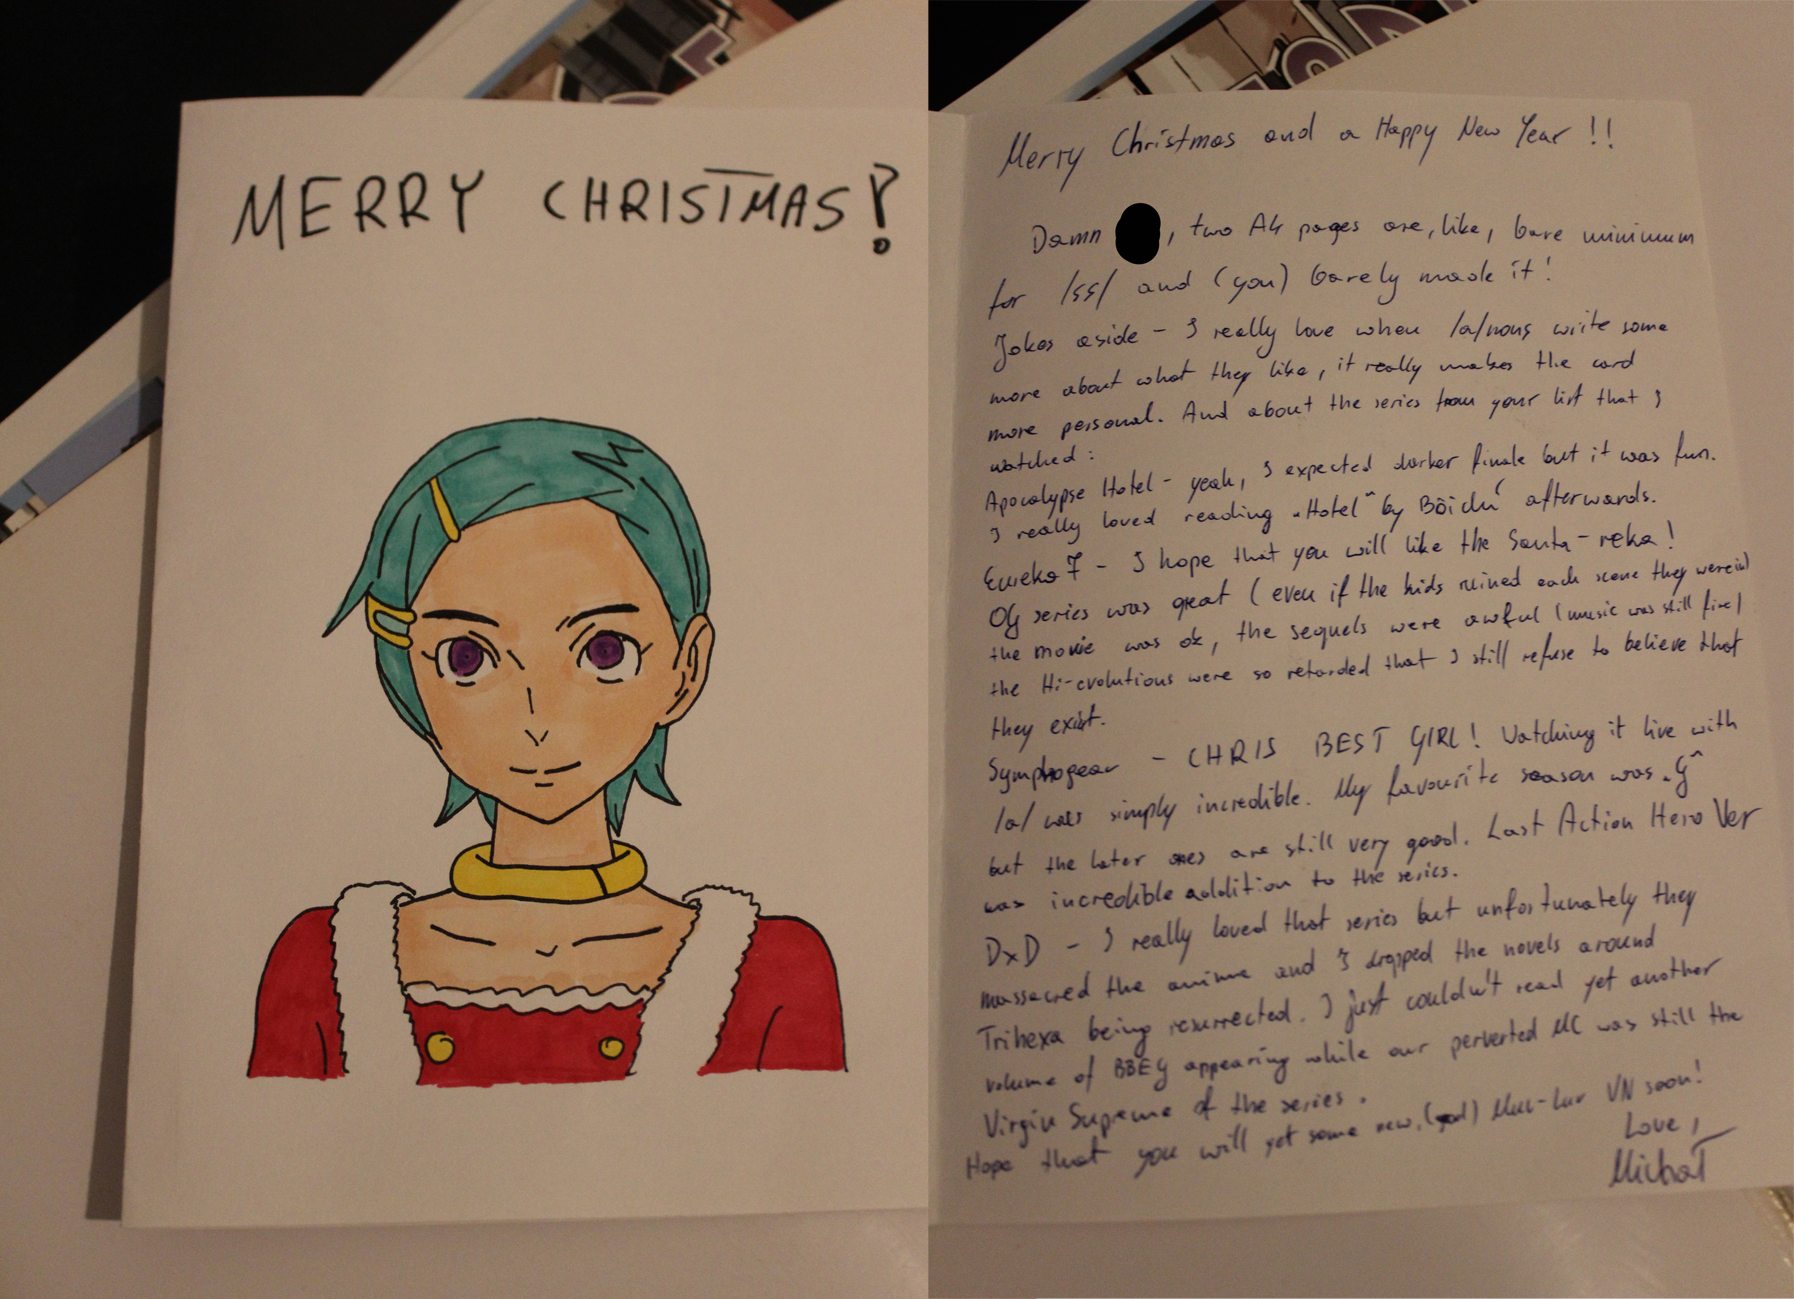 MERRY CHRISTMAS!
Merry Christmas and a Happy New Year !!
Damn , two A4 pages are, like, bare minimum
for /ss/ and (you) barely made it!
Jokes aside - I really love when /a/nons write some
more about what they like, it really makes the card
more personal. And about the series from your list that I
watched :
Apocalypse Hotel - yeah, I expected darker finale but it was fun.
I really loved reading „Hotel" by Bōichi afterwards.
Eureka 7 - I hope that you will like the Santa-reka!
OG series was great (even if the kids ruined each scene they were in)
the movie was ok, the sequels were awful (music was still fire)
the Hi-evolutions were so retarded that I still refuse to believe that
they exist.
Symphogear - CHRIS BEST GIRL! Watching it live with
/a/ was simply incredible. My favourite season was „G"
but the later ones are still very good. Last Action Hero Ver
was incredible addition to the series.
DxD - I really loved that series but unfortunately they
massacred the anime and I dropped the novels around
Trihexa being resurrected. I just couldn't read yet another
volume of BBEG appearing while our perverted MC was still the
Virgin Supreme of the series.
Hope that you will get some new, Muv-Luv VN soon!
Love,
Michał